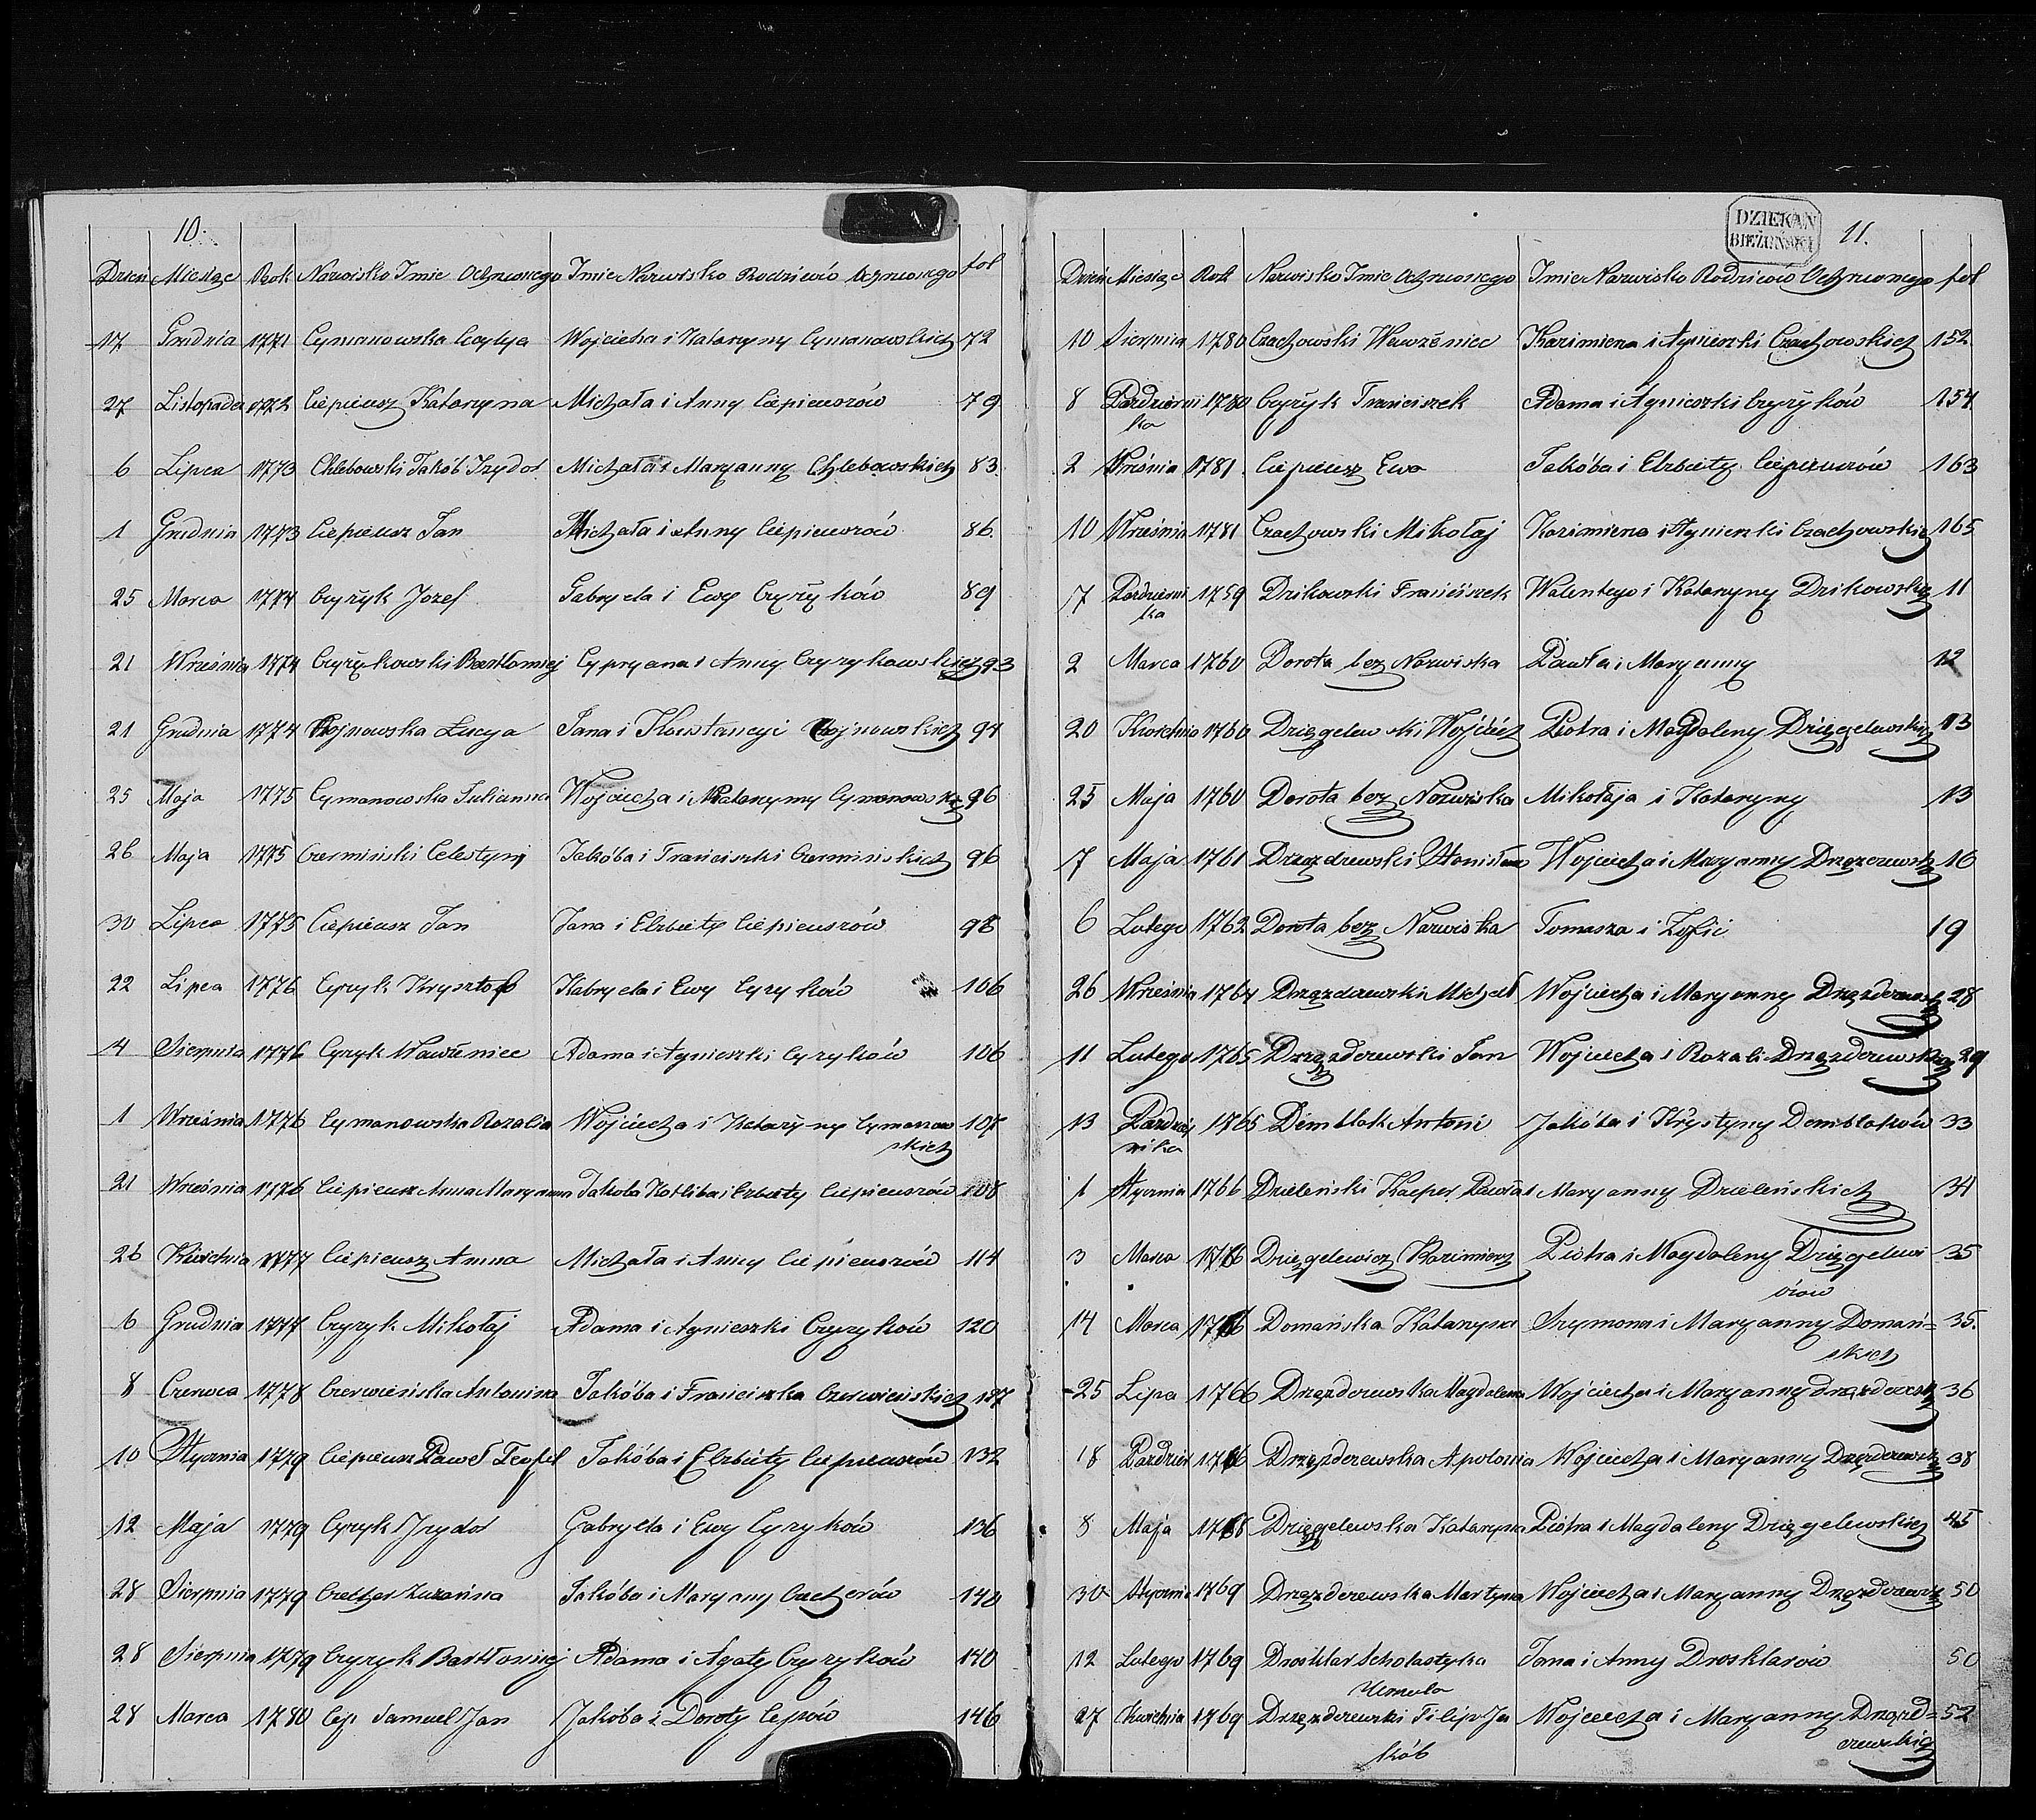 10.
Dzień Miesiąc Rok Nazwisko Imie Ochrzczonego Imie Nazwisko Rodziców Ochrzczonego fol
17 Grudnia 1771 Cymanowska Wojciecha i Katarzyny Cymanowskich 72
27 Listopada 1772 Ciepieusz Katarzyna Michała i Anny Ciepieuszów 79
6 Lipca 1773 Chlebowski Jakób Izydor Michała i Maryanny Chlebowskich 83.
1 Grudnia 1773 Ciepieusz Jan Michała i Anny Ciepieuszów 86.
25 Marca 1774 Czyżyk Jozef Gabryela i Ewy Czyżyków 89
21 Września 1774 Czyżykowski Bartłomiej Cypryana i Anny Czyzykowskich 93
21 Grudnia 1774 Chojnowska Łucya Jana i Konstancyi Chojnowskich 94
25 Maja 1775 Cymanowska Julianna Wojciecha i Katarzyny Cymanowskich 96
26 Maja 1775 Czermiński Celestyn Jakóba i Franciszki Czermińskich 96
30 Lipca 1775 Ciepieusz Jan Jana i Elzbiety Ciepieuszów 98
22 Lipca 1776 Cyzyk Krysztof Gabryela i Ewy Cyzyków 106
4 Sierpnia 1776 Cyzyk Wawrzeniec Adama i Agnieszki Cyzyków 106
1 Września 1776 Cymanowska Rozalia Wojciecha i Katarzyny Cymanow 107
skich
21 Września 1776 Ciepieusz Anna Maryanna Jakoba i Elzbiety Ciepieuszów 108
26 Kwietnia 1777 Ciepieusz Anna Michała i Anny Ciepieuszów 114
6 Grudnia 1777 Czyzyk Mikołaj Adama i Agnieszki Czyzyków 120
8 Czerwca 1778 Czerwieńska Antonina Jakóba i Franciszka Czerwieńskich 127
10 Stycznia 1779 Ciepieusz Paweł Teofil Jakóba i Elzbiety Ciepieuszów 132
12 Maja 1779 Cyzyk Izydor Gabryela i Ewy Cyzyków 136
28 Sierpnia 1779 Zuzanna Jakóba i Maryany 140
28 Sierpnia 1779 Czyzyk Bartłomiej Adama i Agaty Czyzyków 140
28 Marca 1780 Cep Samuel Jan Jakoba i Doroty Cepów 146
DZIEKAN
BIEŻUŃSKI
11.
Dzień Miesiąc Rok Nazwisko Imie Ochrzczonego Imie Nazwisko Rodziców Ochrzczonego fol
10 Sierpnia 1780 Czachowski Wawrzeniec Kazimierza i Agnieszki Czachowskich 152
8 Pazdzierni 1780 Czyżyk Franciszek Adama i Agnieszki Czyżyków 154
ka
2 Wrśnia 1781 Ciepieusz Ewa Jakóba i Elzbiety Ciepieuszów 163
10 Września 1781 Czachowski Mikołaj Kazimierza i Agnieszki Czachowskich 165
7 Pazdzierni 1759 Dzikowski Franciszek Walentego i Katarzyny Dzikowskich 11
ka
2 Marca 1760 Dorota bez Nazwiska Pawła i Maryanny 12
20 Kwietnia 1760 Dzięgelewski Wojciech Piotra i Magdaleny Dzięgelewskich 13
25 Maja 1760 Dorota bez Nazwiska Mikołaja i Katarzyny 13
7 Maja 1761 Stanisław Wojciecha i Maryanny 16
6 Lutego 1762 Dorota bez Nazwiska Tomasza i Zofii 19
26 Września 1764 Michał Wojciecha i Maryanny 28
11 Lutego 1765 Drzęzdzewski Jan Wojciecha i Rozali Drzęzdzewskich 29
13 Pazdzier 1765 Dembłak Antoni Jakóba i Krystyny Dembłaków 33
nika
1 Stycznia 1766 Dzieleński Kacper Pawła i Maryanny Dzieleńskich 34
3 Marca 1766 Dzięgelewicz Kazimierz Piotra i Magdaleny Dzięgelewi 35
czów
14 Marca 1766 Domańska Katarzyna Szymona i Maryanny Domań= 35.
skich
25 Lipca 1766 Drzęzdzewska Magdalena Wojciecha i Maryanny 36
18 Pazdzier 1766 Drzęzdzewska Apolonia Wojciecha i Maryanny 38
8 Maja 1768 Dzięgelewska Katarzyna Piotra i Magdaleny Dzięgelewskich 45
30 Stycznia 1769 Drzęzdzewska Martyna Wojciecha i Maryanny 50
12 Lutego 1769 Drosklar Scholastyka Jana i Anny Drosklarów 50
27 Kwietnia 1769 Drzęzdzewski Filip Ja Wojciecha i Maryanny Drzęzd= 52
kób zewskich